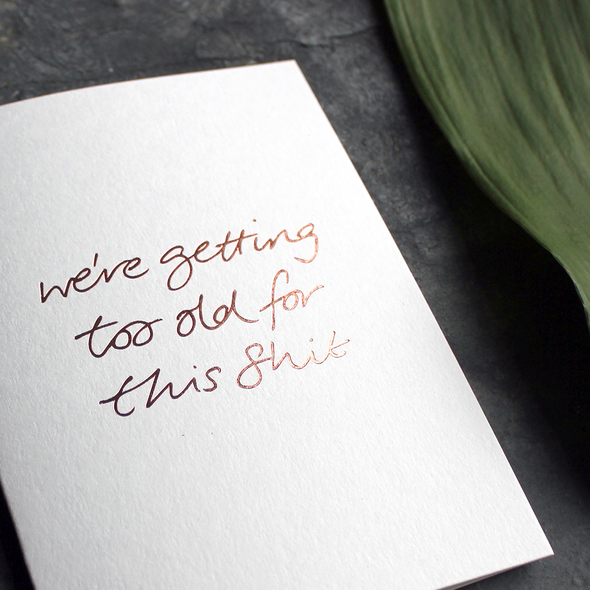 we're getting
too old for
this shit